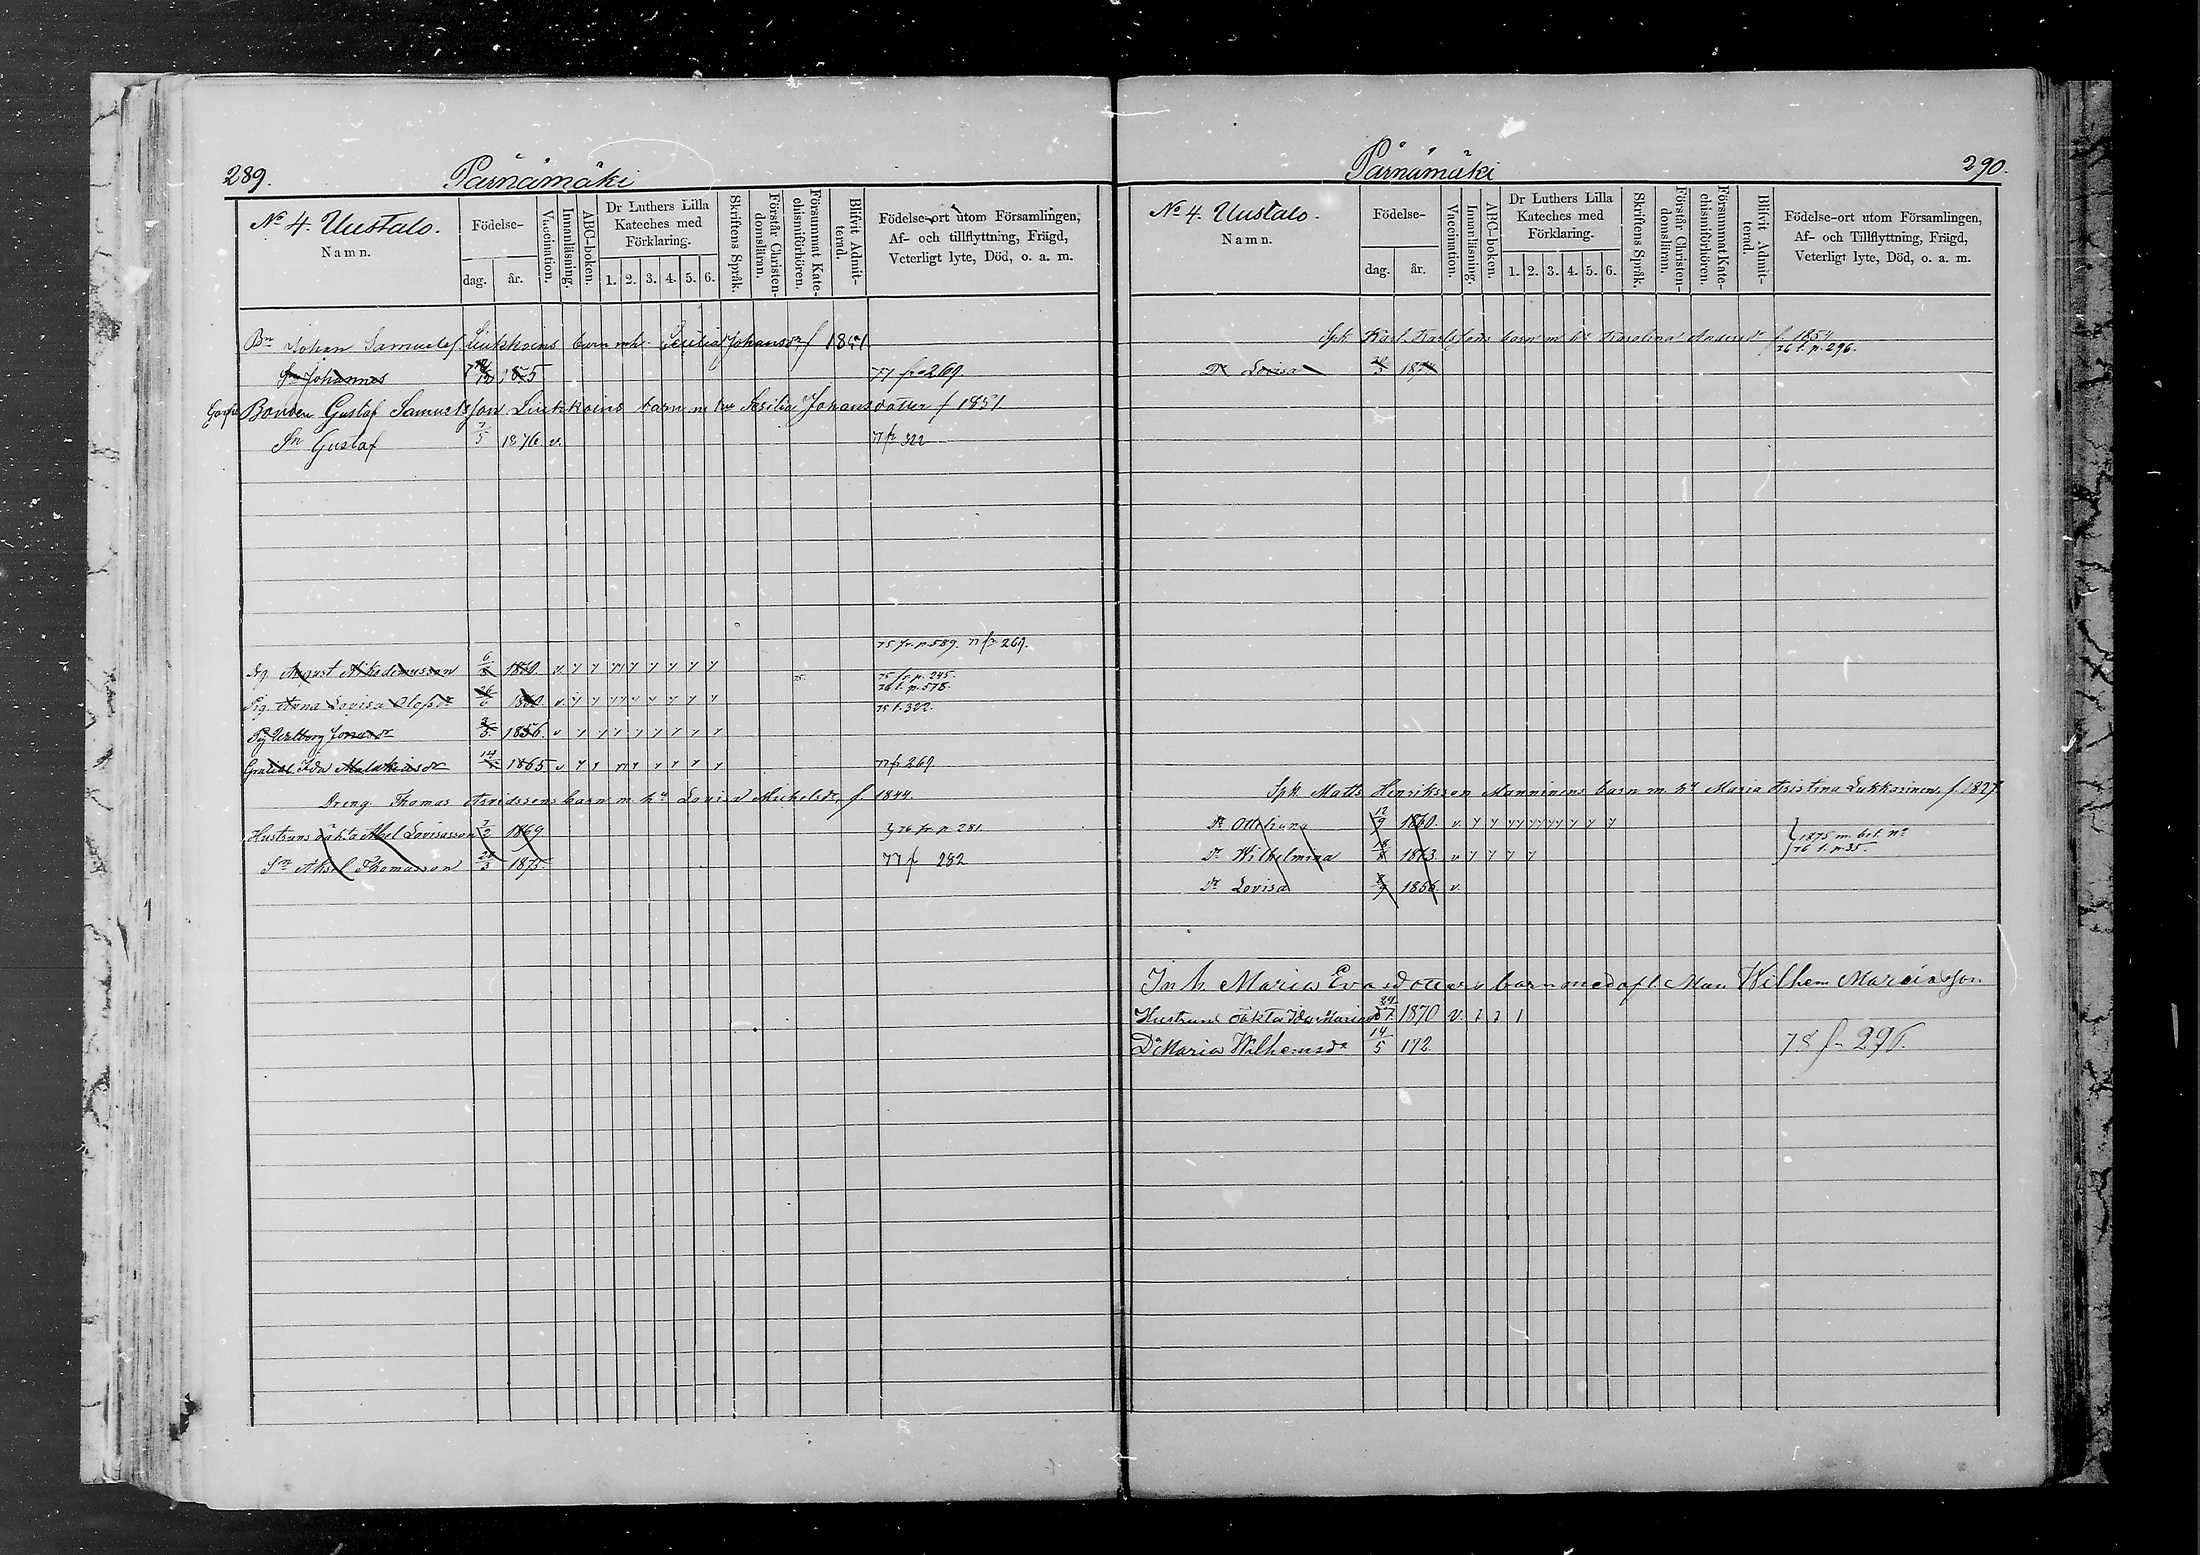 289. Pärnämäki
No 4. Uustalo.
Namn.
Födelse-
dag. år.
Vaccination.
Innanläsning.
ABC-boken.
Dr Luthers Lilla Kateches med Förklaring.
1. 2. 3. 4. 5. 6.
Skriftens Språk.
Förstår Christendomsläran.
Försummat Katechismiförhören.
Blifvit Admitterad.
Födelse-ort utom Församlingen, Af- och tillflyttning, Frägd, Veterligt lyte, Död, o. a. m.
Bn Johan Samuelsf Liukkoins barn mhr Johansdr f 1851
Sn Johannes 1875 77 fr 269
Bonden Gustaf Samuelsson Liukkoins barn m hu Sesilia Johansdotter f 1851.
Sn Gustaf 7/5 1876. v. 77 fr 322
75 fr. p. 589. 77 fr 269.
Drg. August Nikodemusson 6/8 1860. v
75 fr. p. 245.
76 t. p. 578.
Pig. Anna Lovisa Olofsdr 1860. v.
75 t. 322.
Pig Walborg Jonasdr 1856. v
Ida Malakiasdr 14 1865 v 77 fr 269
Dreng Thomas Arvidssons barn m. hu Lovisa Michelsdr, f. 1844.
Hustruns oäkta Abel Lovisasson 7/3 1869 } 76 fr. p. 281.
Sn Aksel Thomasson 22/3 1875. 77 f 282
Pärnämäki 290.
No 4. Uustalo.
Namn.
Födelse-
dag. år.
Vaccination.
Innanläsning.
ABC-boken.
Dr Luthers Lilla Kateches med Förklaring.
1. 2. 3. 4. 5. 6.
Skriftens Språk.
Förstår Christendomsläran.
Försummat Katechismiförhören.
Blifvit Admitterad.
Födelse-ort utom Församlingen, Af- och Tillflyttning, Frägd, Veterligt lyte, Död, o. a. m.
Sph Karl Karlssons barn m hu Karolina Andersdr f. 1854
76 t. p. 296.
Dr Lovisa
Sph. Matts Henriksson Manninens barn m. hu Maria Kristina Lukkarinen, f. 1827
Dr Ottiliana 12/9 1860. v.
Dr Wilhelmina 18/8 1863. v
} 1875 m. bet. no
76 t. p. 35.
Dr Lovisa 8/9 1866. v.
Inh. Maria Evasdotters barn med afl. Man Wilhem Mariasson
Hustruns oäkta Ida Mariasdr 1870 v.
Dr Maria Wilhemsdr 14/5 172. 78 f 296.